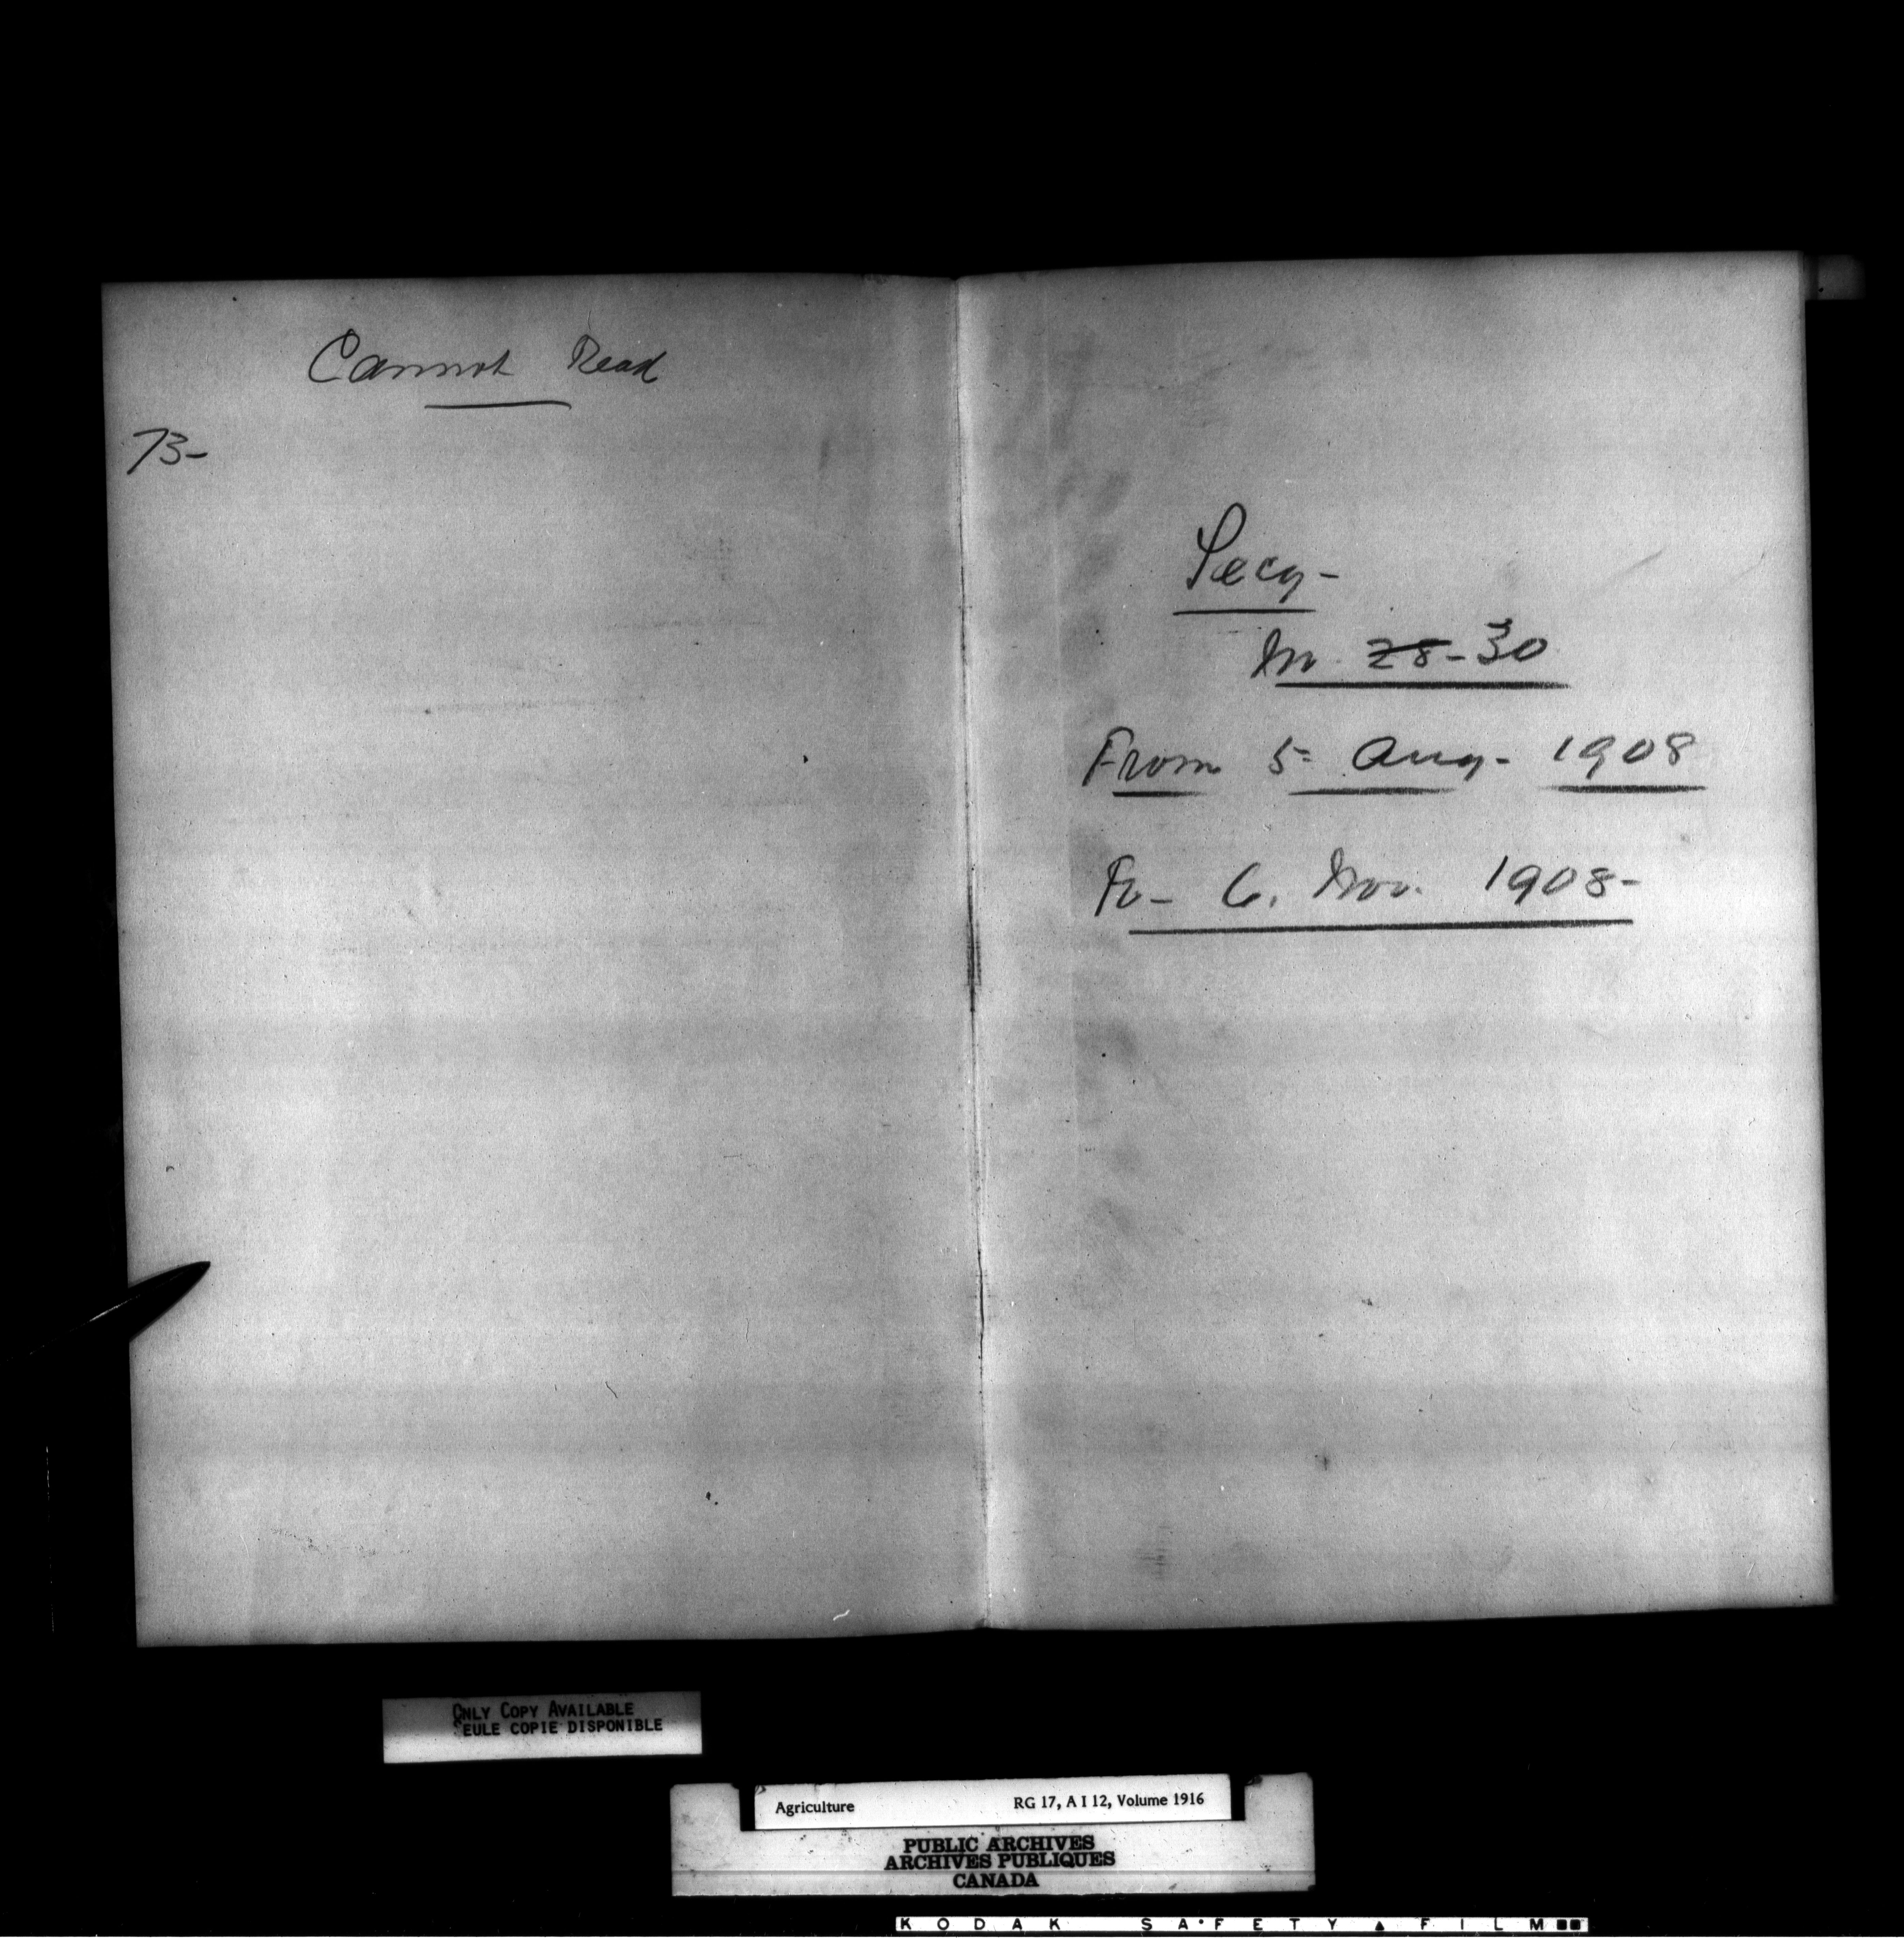 Cannot Read
73-
Secy-
No. 28-30
From 5- Aug- 1908
To- 6. Nov. 1908-
ONLY COPY AVAILABLE
SEULE COPIE DISPONIBLE
Agriculture RG 17, A I 12, Volume 1916
PUBLIC ARCHIVES
ARCHIVES PUBLIQUES
CANADA
KODAK SAFETY FILM